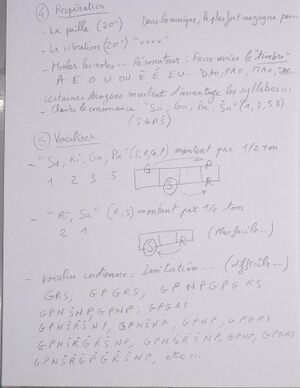 ④ Respiration
- La paille (20") Dans la musique, le plus fort ne gagne pas...
- La vibration (20") "vvvv"
- les notes... Résonateur - Faire varier le "timbre"
A E O U OU È É EU... DAO, PAO, MAO, TAO...
Certaines langues d'avantage les syllabes...
- Chanter la consonance "Sa, Ga, Pa, Ṡa" (1, 3, 5, 8)
(S G P Ṡ)
⑤ Vocalises
- "Sa, Ri, Ga, Pa" (S, R, G, P) montant par 1/2 ton
1 2 3 5
G P
S R
- "Ri, Sa" (R, S) montant par 1/2 ton
2 1
S R
(Plus facile...)
- Vocalise indienne = imitation... (difficile...)
GRS, GPGRS, GPNPGPGRS
GPNṠNP, GPNP, GPGRS
GPNṠṘṠNP, GPNṠNP, GPNP, GPGRS
GPNṠṘĠṘṠNP, GPNṠṘṠNP, GPNP, GPGRS
GPNṠṘĠṖĠṘṠNP, etc...